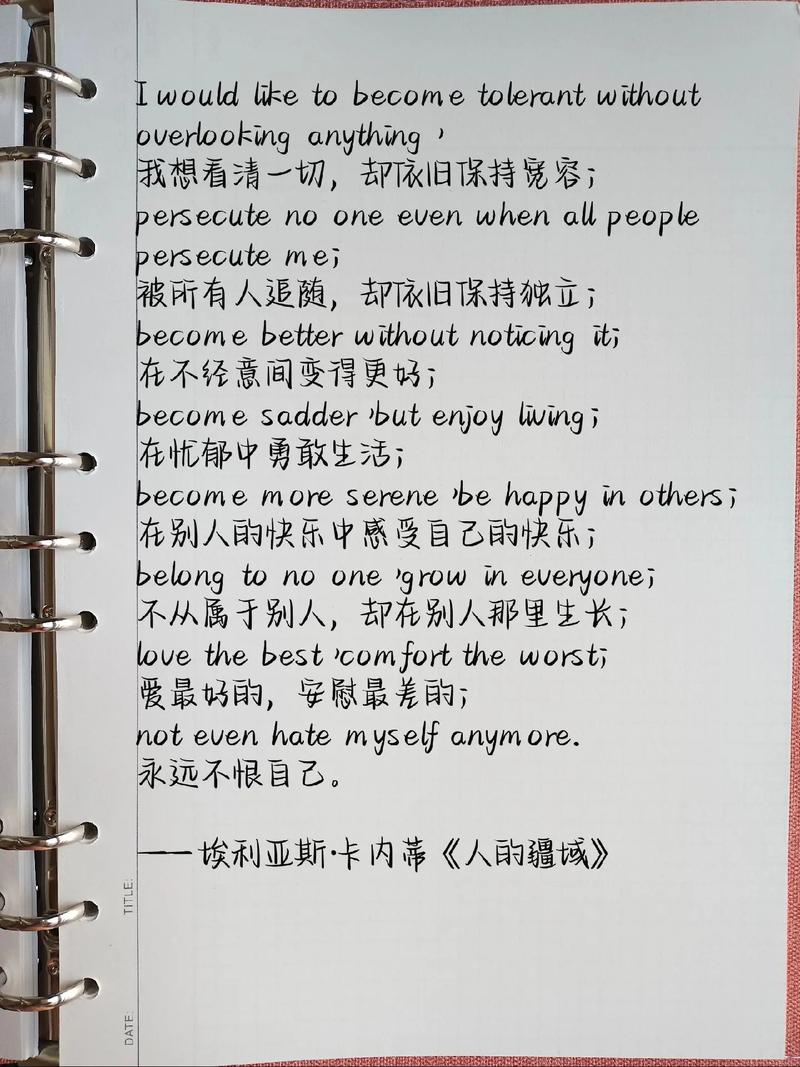 I would like to become tolerant without
overlooking anything,
我想看清一切，却依旧保持宽容；
persecute no one even when all people
persecute me;
被所有人追随，却依旧保持独立；
become better without noticing it;
在不经意间变得更好；
become sadder,but enjoy living;
在忧郁中勇敢生活；
become more serene,be happy in others;
在别人的快乐中感受自己的快乐；
belong to no one,grow in everyone;
不从属于别人，却在别人那里生长；
love the best,comfort the worst;
爱最好的，安慰最差的；
not even hate myself anymore.
永远不恨自己。
——埃利亚斯·卡内蒂《人的疆域》
TITLE:
DATE: